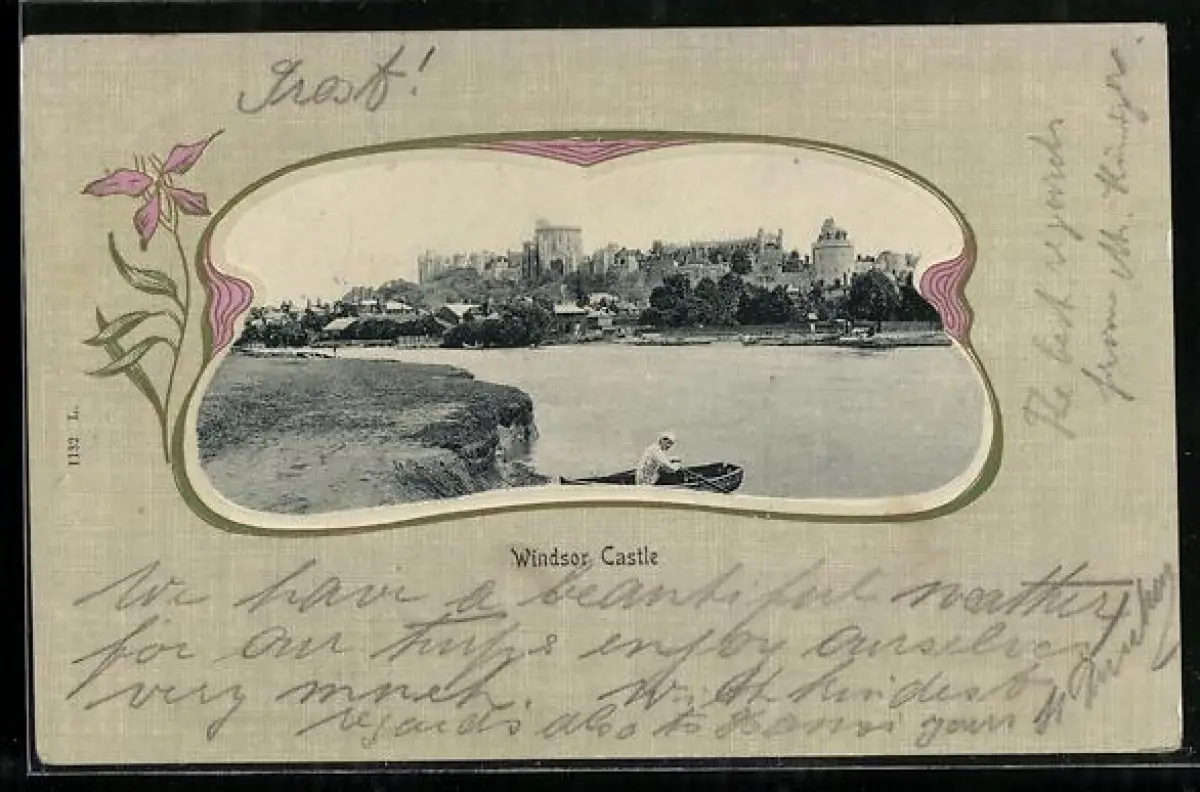 Prost!
The best regards
from M.
1132 L.
Windsor Castle
We have a beautiful weather
for our trip & enjoy ourselves
very much. With kindest
regards also to yours